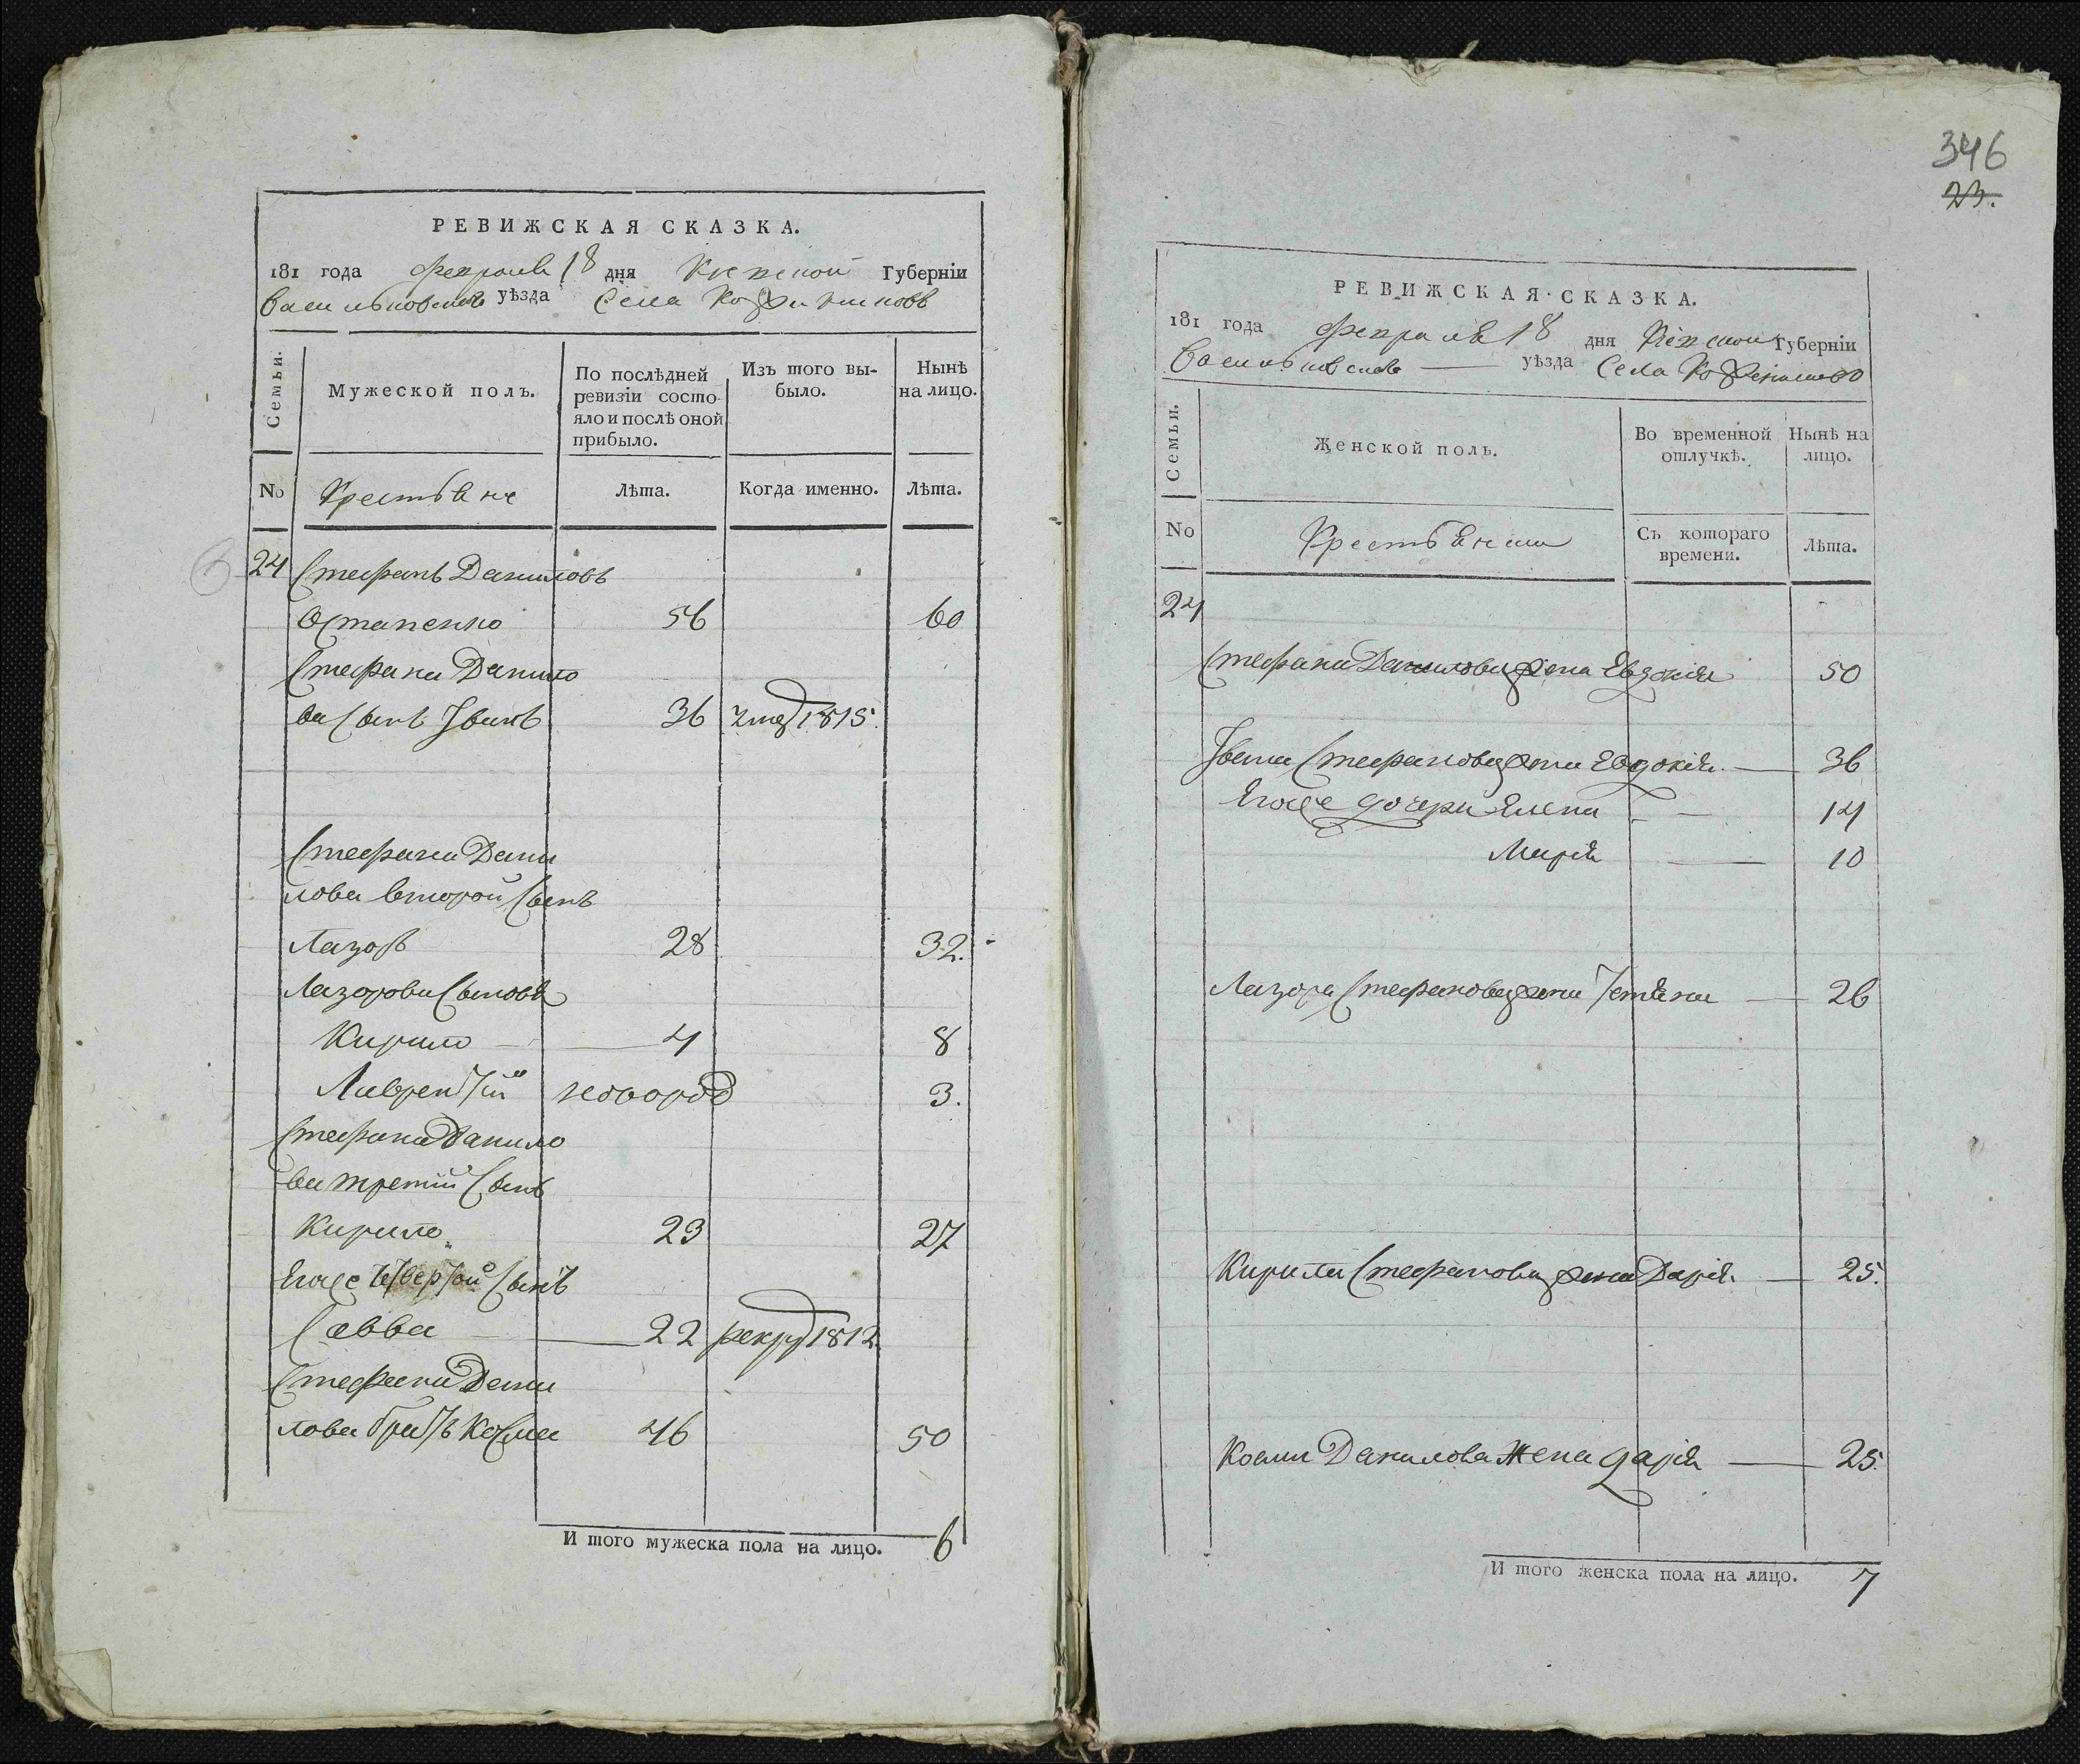 РЕВИЖСКАЯ СКАЗКА.
181 года февраля 18 дня Киевской Губерніи
Васильковскаго уѣзда Села
Семьи.
Мужеской полъ.
По послѣдней ревизіи состояло и послѣ оной прибыло.
Изъ того выбыло.
Нынѣ на лицо.
No
Крестьяне
Лѣта.
Когда именно.
Лѣта.
24 Стефанъ Даниловъ
Остапенко 56 60
Стефана Данило
ва Сынъ Іванъ 36 умер 1815.
Стефана Дани
лова второй Сынъ
Лазоръ 28 32.
Лазорова Сыновя
Кирило 4 8
Лаврентій новород 3.
Стефана Данило
ва третій Сынъ
Кирило 23 27
Егоже Четвертой Сынъ
Савва 22 рекру 1812.
Стефана Дани
лова братъ Козма 46 50
И того мужеска пола на лицо. 6
346
23.
РЕВИЖСКАЯ СКАЗКА.
181 года февраля 18 дня Кіевской Губерніи
Васильковскаго уѣзда Села
Семьи.
Женской полъ.
Во временной отлучкѣ.
Нынѣ на лицо.
No
Крестьянки
Съ котораго времени.
Лѣта.
24
Стефана Данилова жена Евдокія 50
Івана Стефанова жена Евдокія 36
Егоже дочери Елена 14
Марія 10
Лазора Стефанова жена Татяна 26
Кирила Стефанова жена Дарія 25.
Козми Данилова жена дарія 25.
И того женска пола на лицо. 7